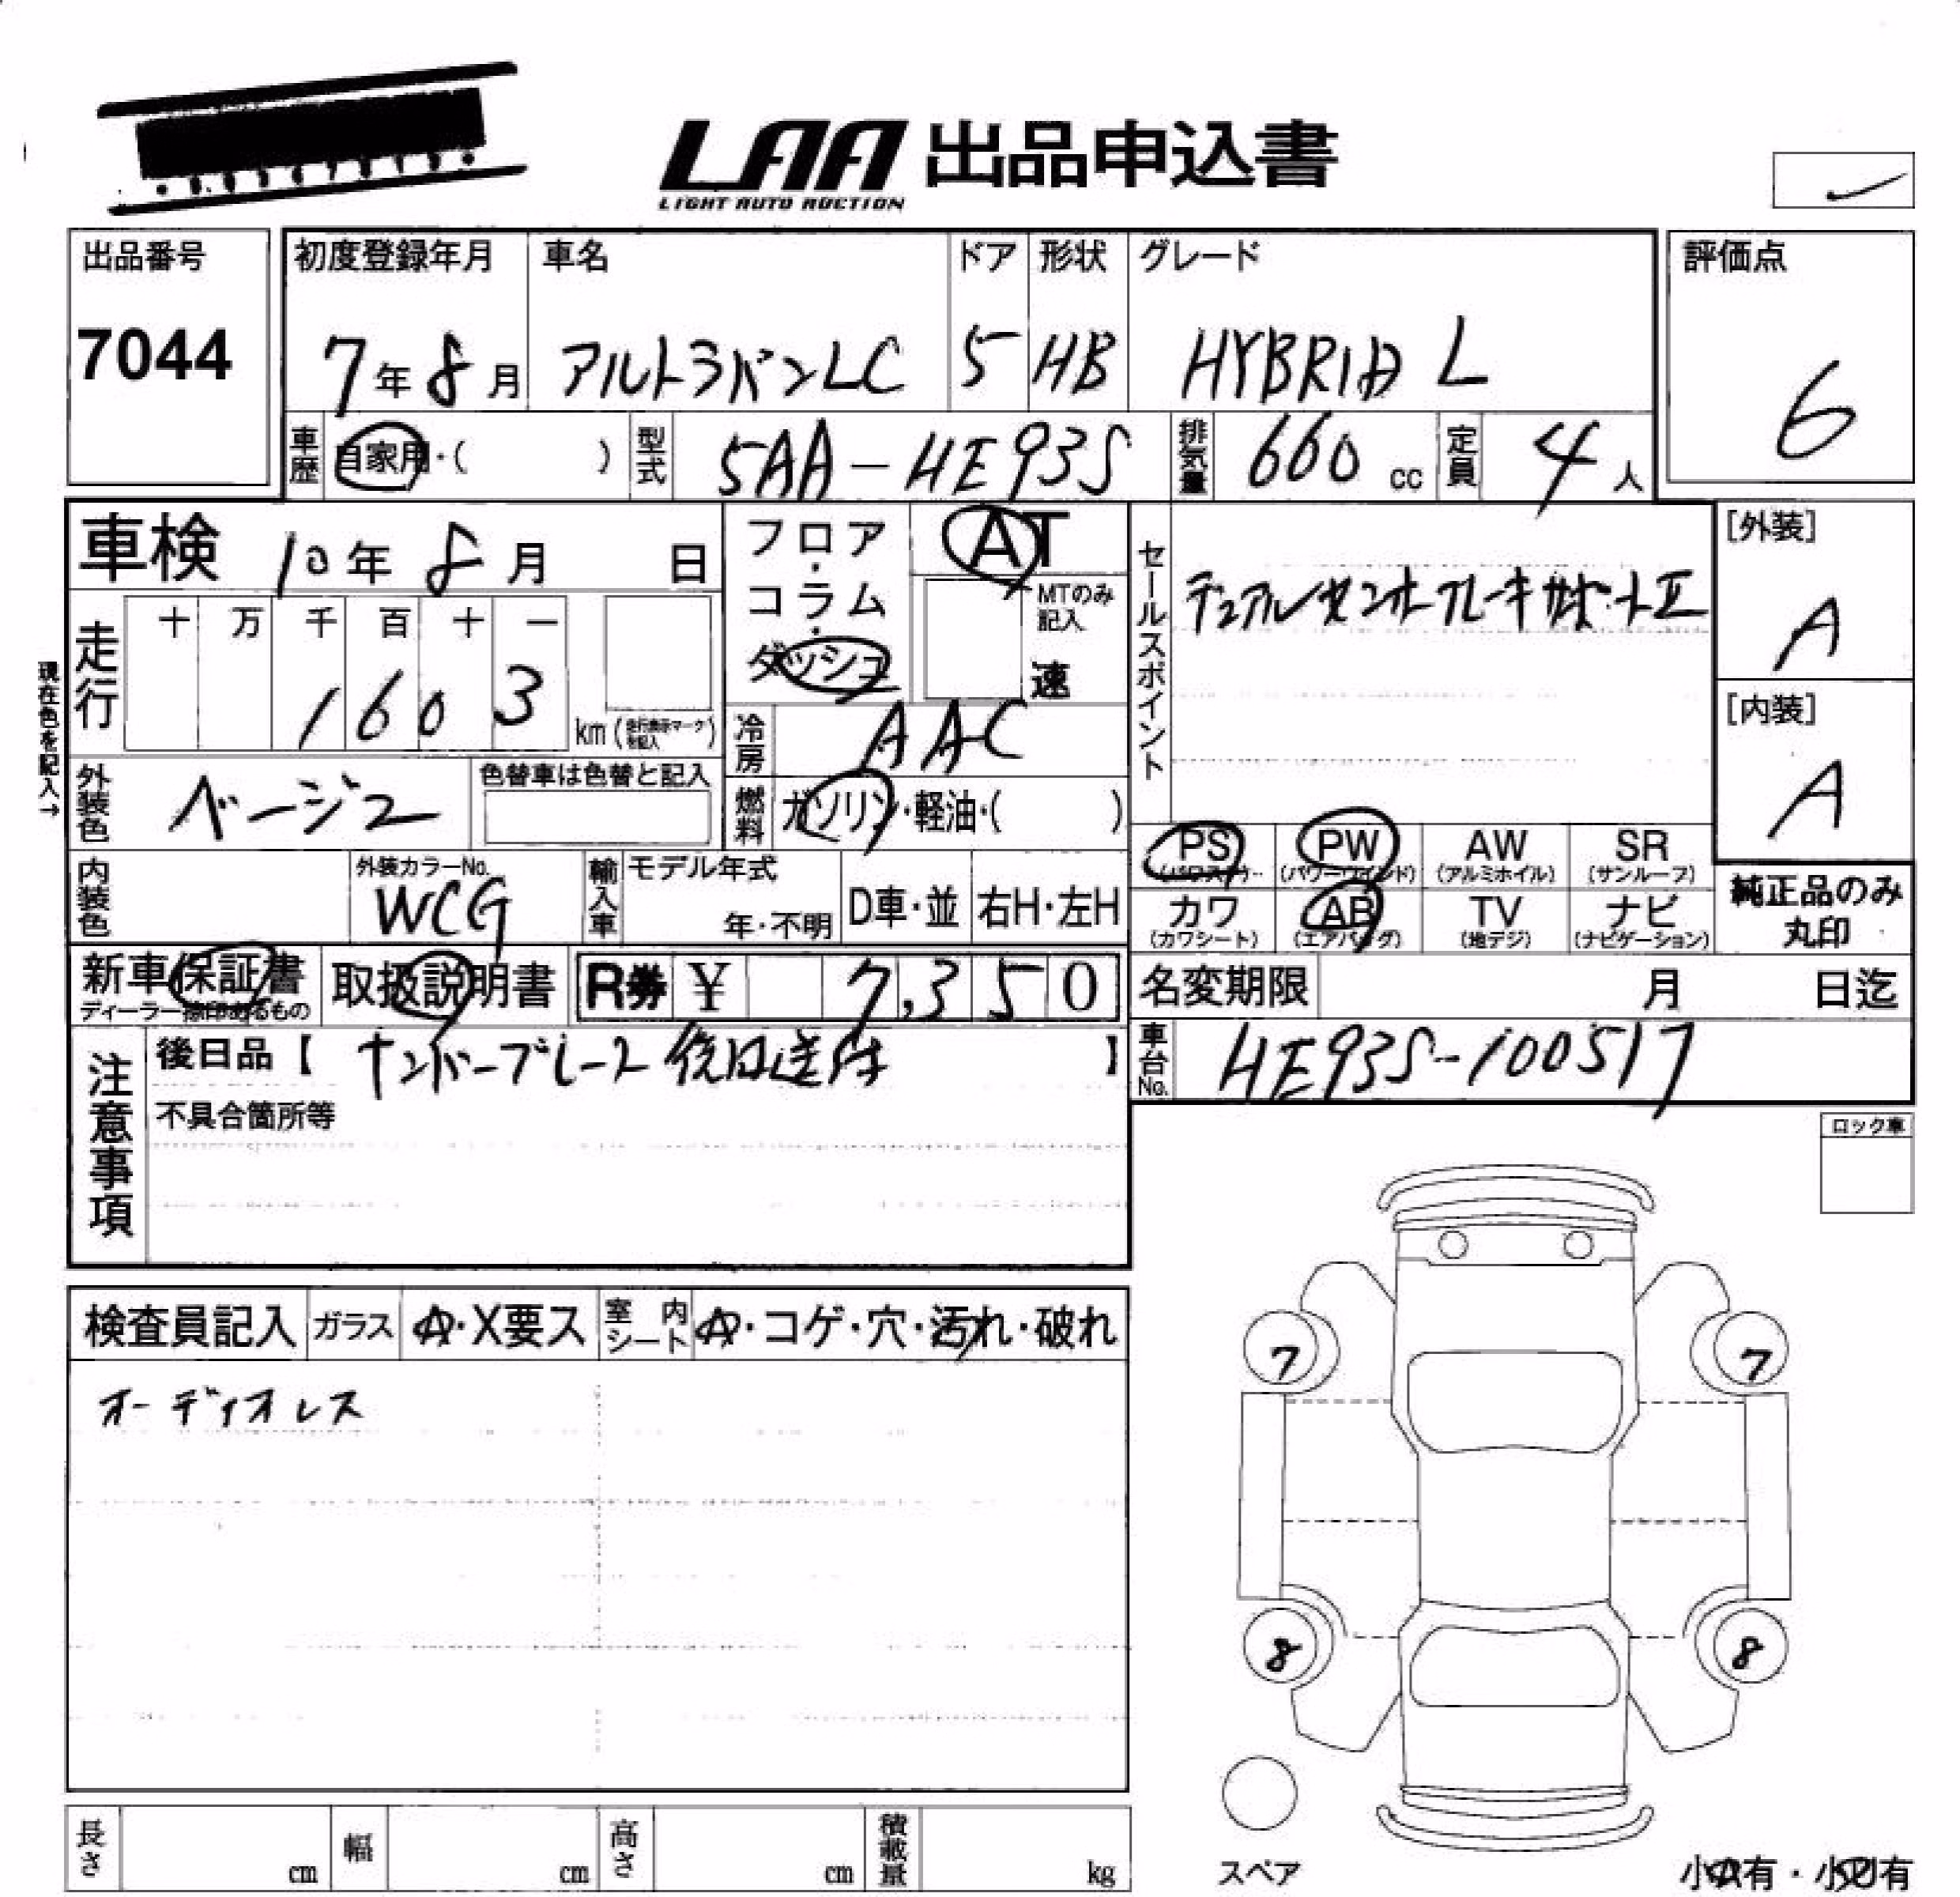 LAA 出品申込書
LIGHT AUTO AUCTION
出品番号
7044
初度登録年月
7年8月
車名
アルトラパンLC
ドア
5
形状
HB
グレード
HYBRID L
評価点
6
車歴
自家用・( )
型式
5AA-HE93S
排気量
660 cc
定員
4人
車検 10年8月 日
フロア・コラム・ダッシュ
AT
MTのみ記入
速
セールスポイント
デュアルセンサーブレーキサポートⅡ
[外装]
A
[内装]
A
現在色を記入→
走行
十 万 千 百 十 一
1603
km(走行表示マークを記入)
冷房
AAC
外装色
ベージュ
色替車は色替と記入
燃料
ガソリン・軽油・( )
PS PW AW SR
(パワステ) (パワーウインド) (アルミホイル) (サンルーフ)
カワ AB TV ナビ
(カワシート) (エアバッグ) (地デジ) (ナビゲーション)
純正品のみ
丸印
内装色
外装カラーNo.
WCG
輸入車
モデル年式
年・不明
D車・並
右H・左H
新車保証書
取扱説明書
R券 ¥ 7,350
名変期限 月 日迄
注意事項
後日品【 ナンバープレート後日送付 】
不具合箇所等
車台No.
HE93S-100517
ロック車
検査員記入
ガラス
A・X要ス
室内シート
A・コゲ・穴・汚れ・破れ
オーディオレス
7 7
8 8
スペア
長さ cm
幅 cm
高さ cm
積載量 kg
小A有・小U有